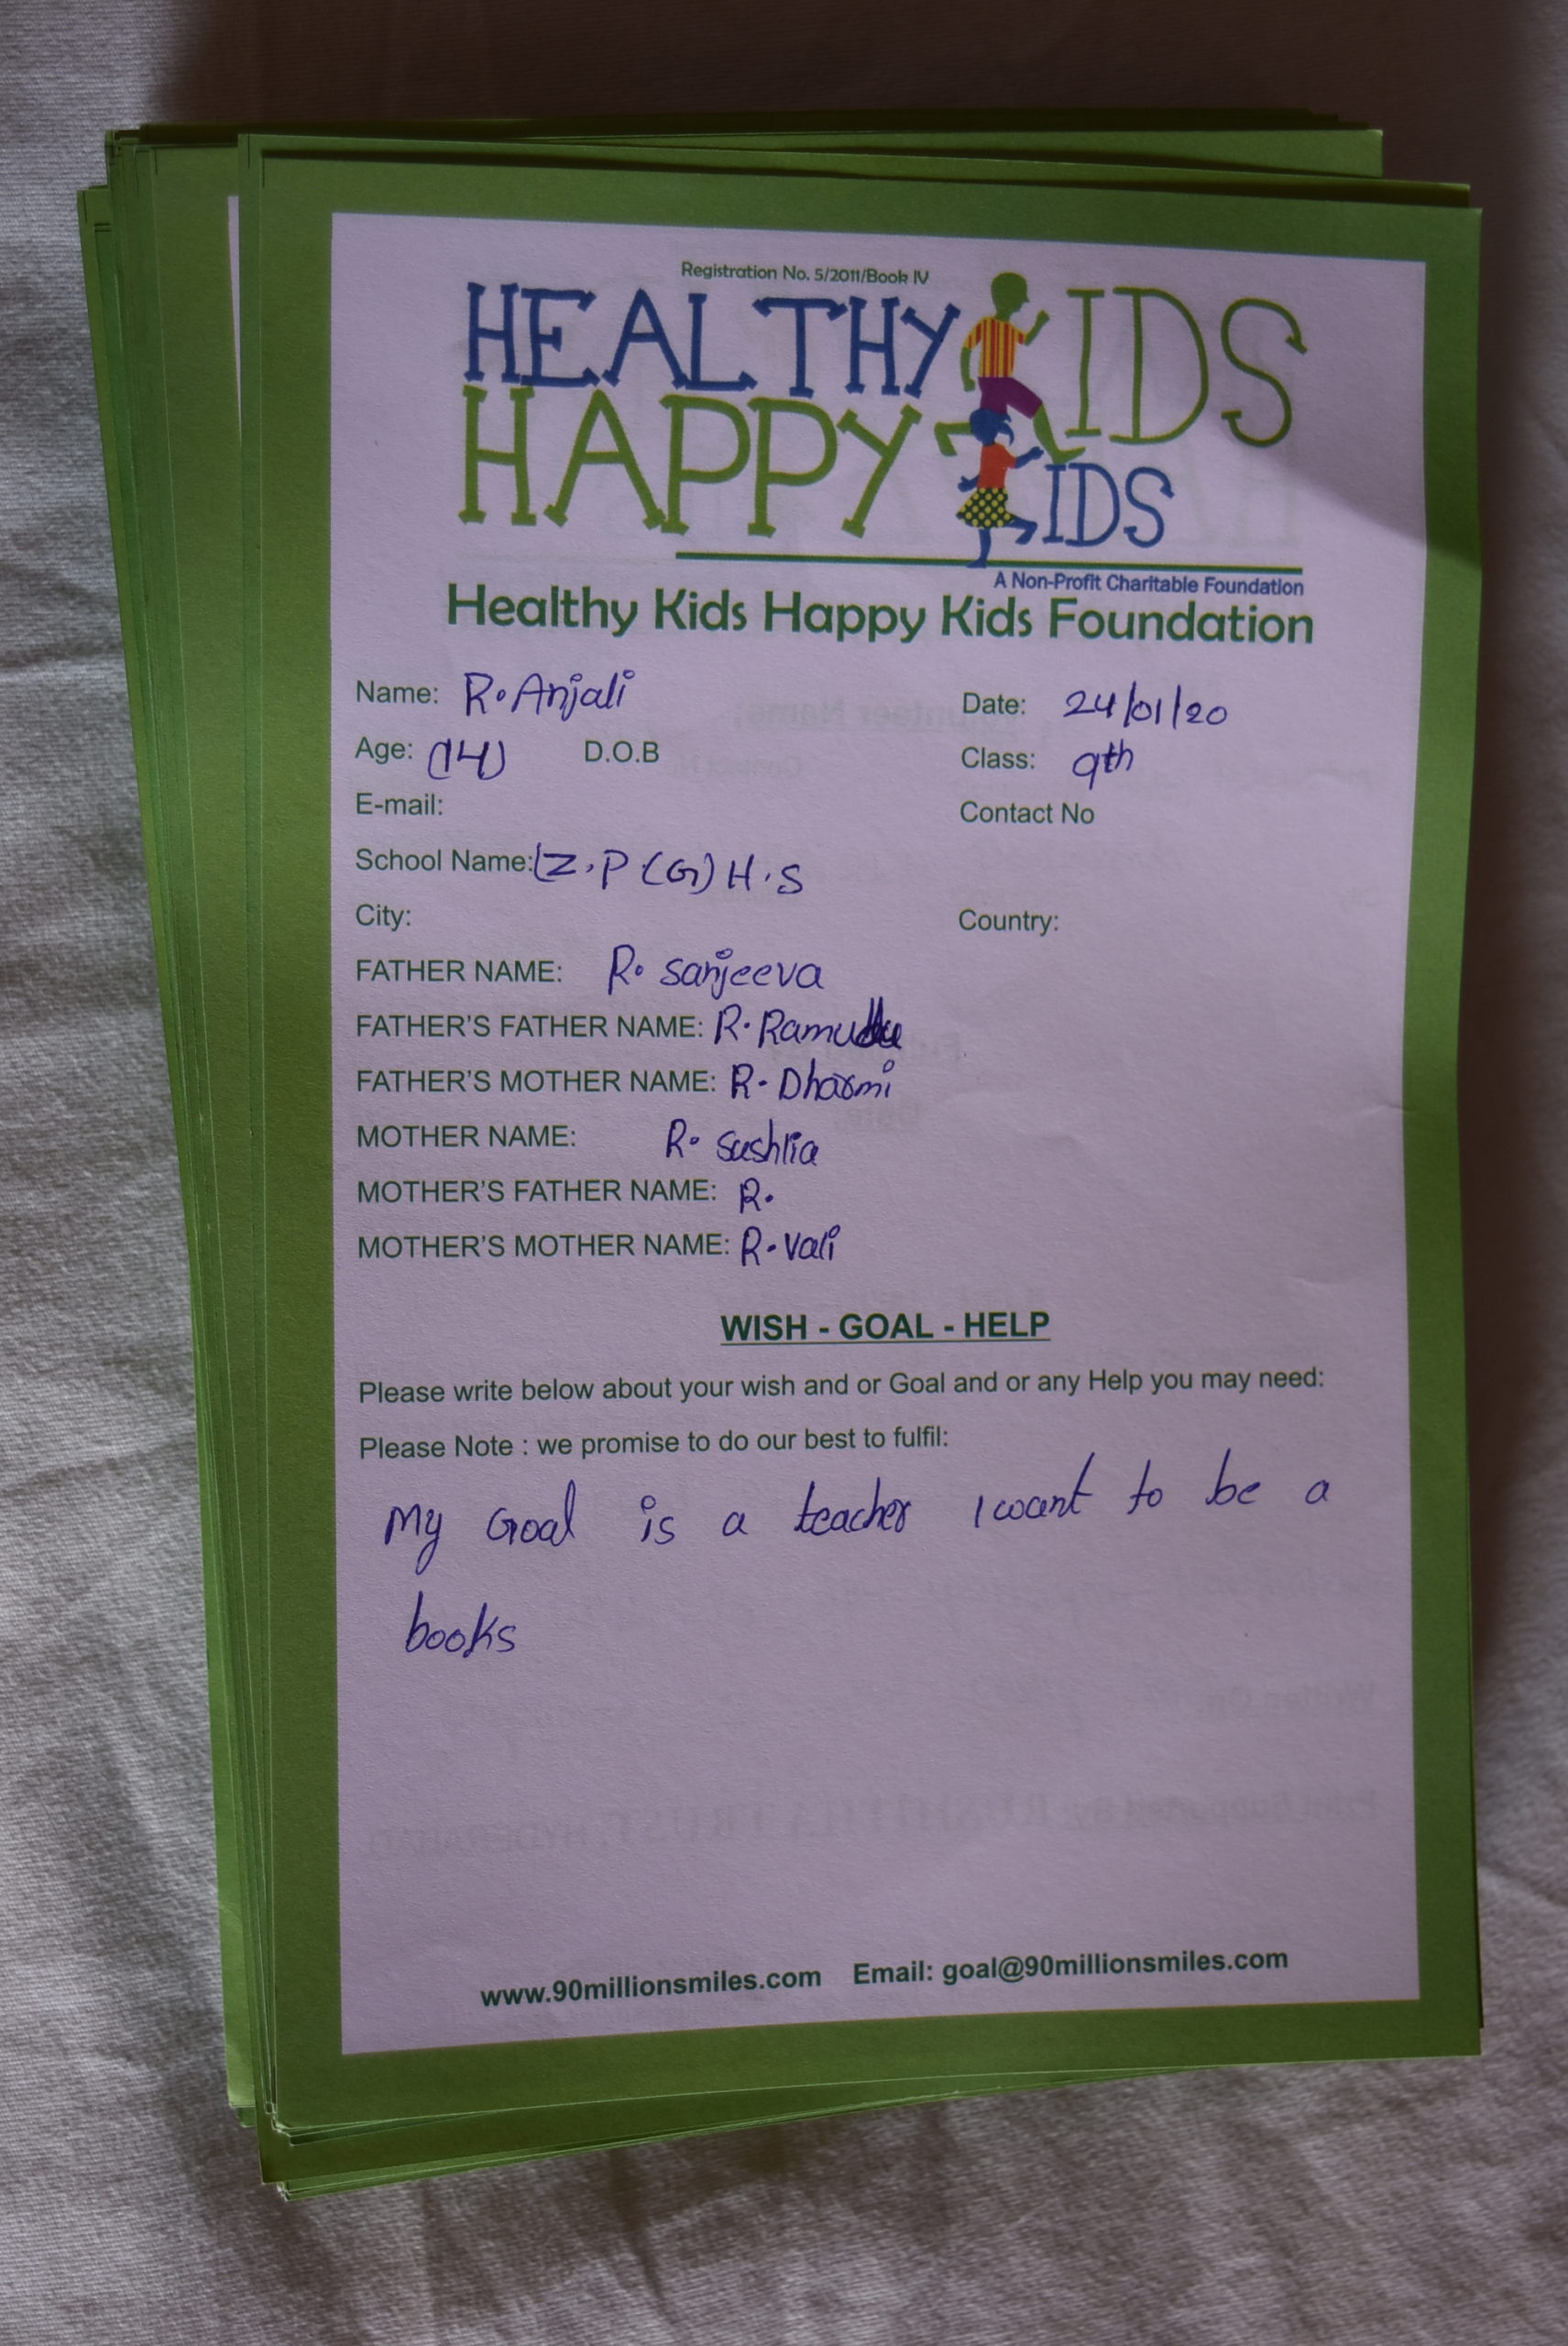 Registration No. 5/2011/Book IV
HEALTHY KIDS
HAPPY KIDS
A Non-Profit Charitable Foundation
Healthy Kids Happy Kids Foundation
Name: R. Anjali Date: 24/01/20
Age: (14) D.O.B Class: 9th
E-mail: Contact No
School Name: Z.P (G) H.S
City: Country:
FATHER NAME: R. sanjeeva
FATHER'S FATHER NAME: R. Ramudu
FATHER'S MOTHER NAME: R. Dharmi
MOTHER NAME: R. sushlia
MOTHER'S FATHER NAME: R.
MOTHER'S MOTHER NAME: R. vali
WISH - GOAL - HELP
Please write below about your wish and or Goal and or any Help you may need:
Please Note : we promise to do our best to fulfil:
My Goal is a teacher I want to be a
books
www.90millionsmiles.com Email: goal@90millionsmiles.com